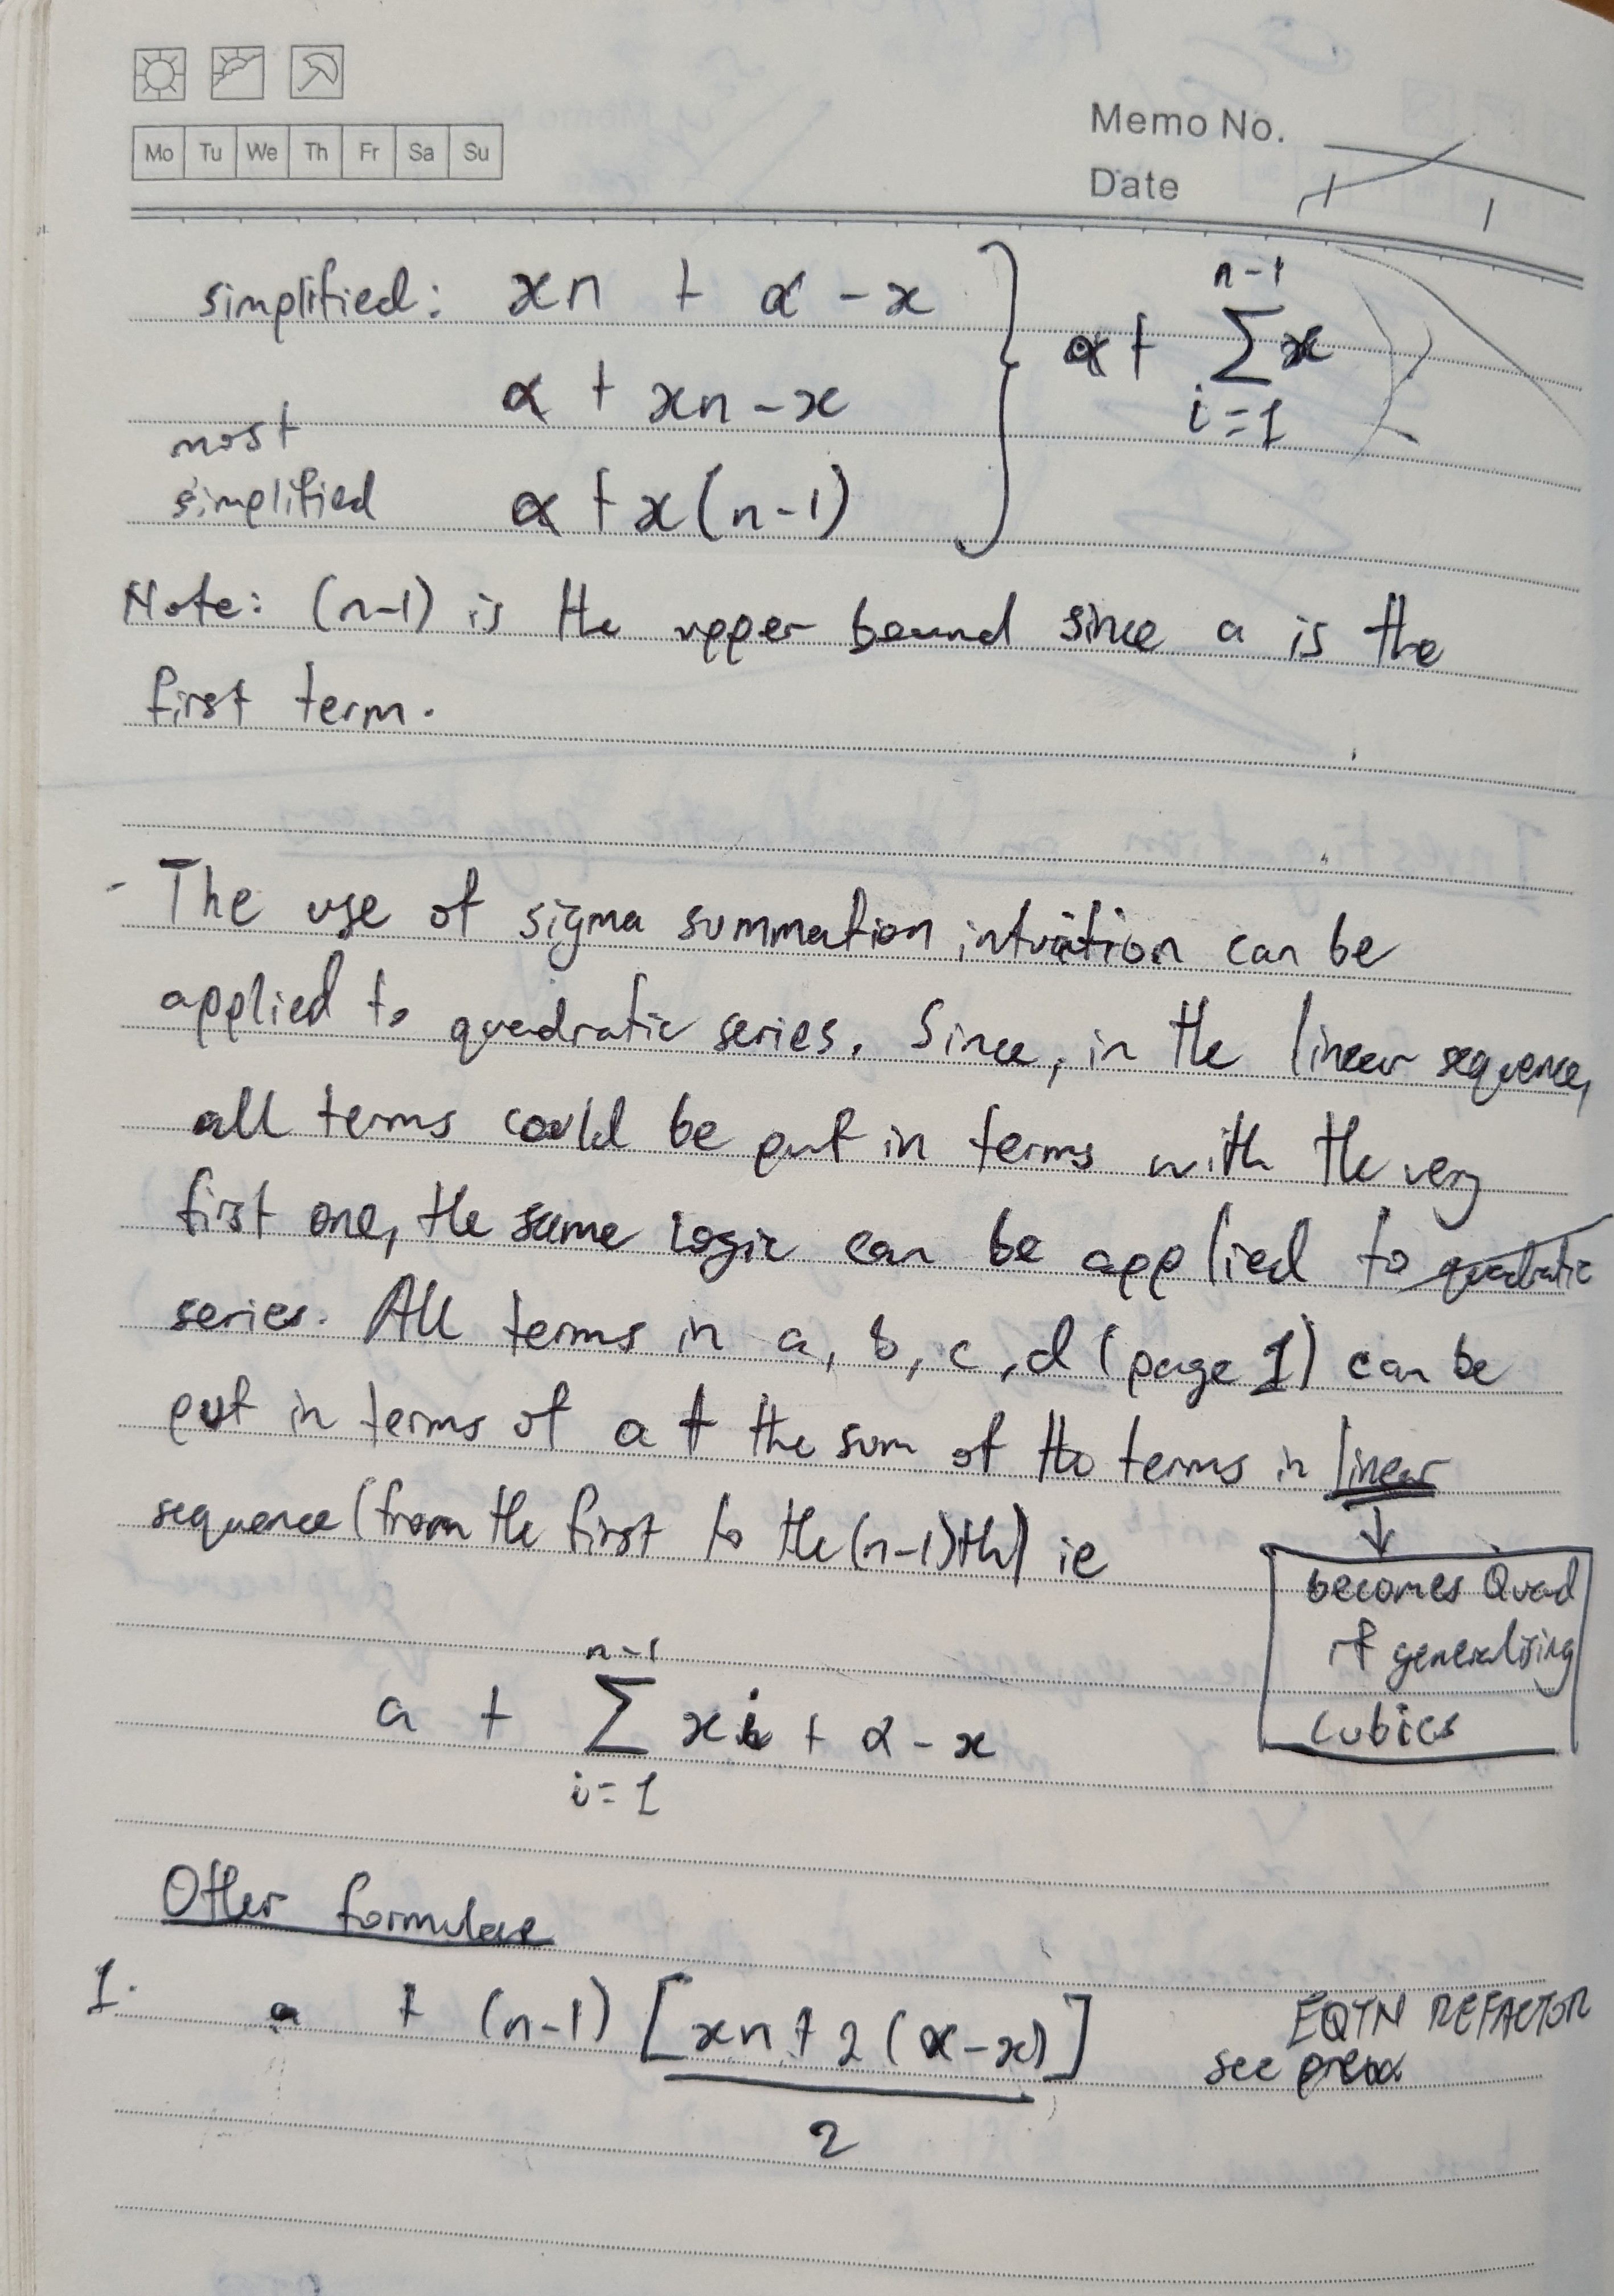 Mo Tu We Th Fr Sa Su
Memo No.
Date / /
simplified: xn + α - x
α + xn - x
most
simplified α + x(n-1)
α + n-1 ∑ i=1 x
Note: (n-1) is the upper bound since a is the
first term.
- The use of sigma summation intuition can be
applied to quadratic series. Since, in the linear sequence,
all terms could be put in terms with the very
first one, the same logic can be applied to quadratic
series. All terms in a, b, c, d (page 1) can be
put in terms of a + the sum of the terms in linear
sequence (from the first to the (n-1)th) ie
becomes Quad
if generalising
cubics
n-1
a + ∑ xi + α - x
i=1
Other formulae
1. a + (n-1) [xn + 2(α-x)]
2
EQTN REFACTOR
see